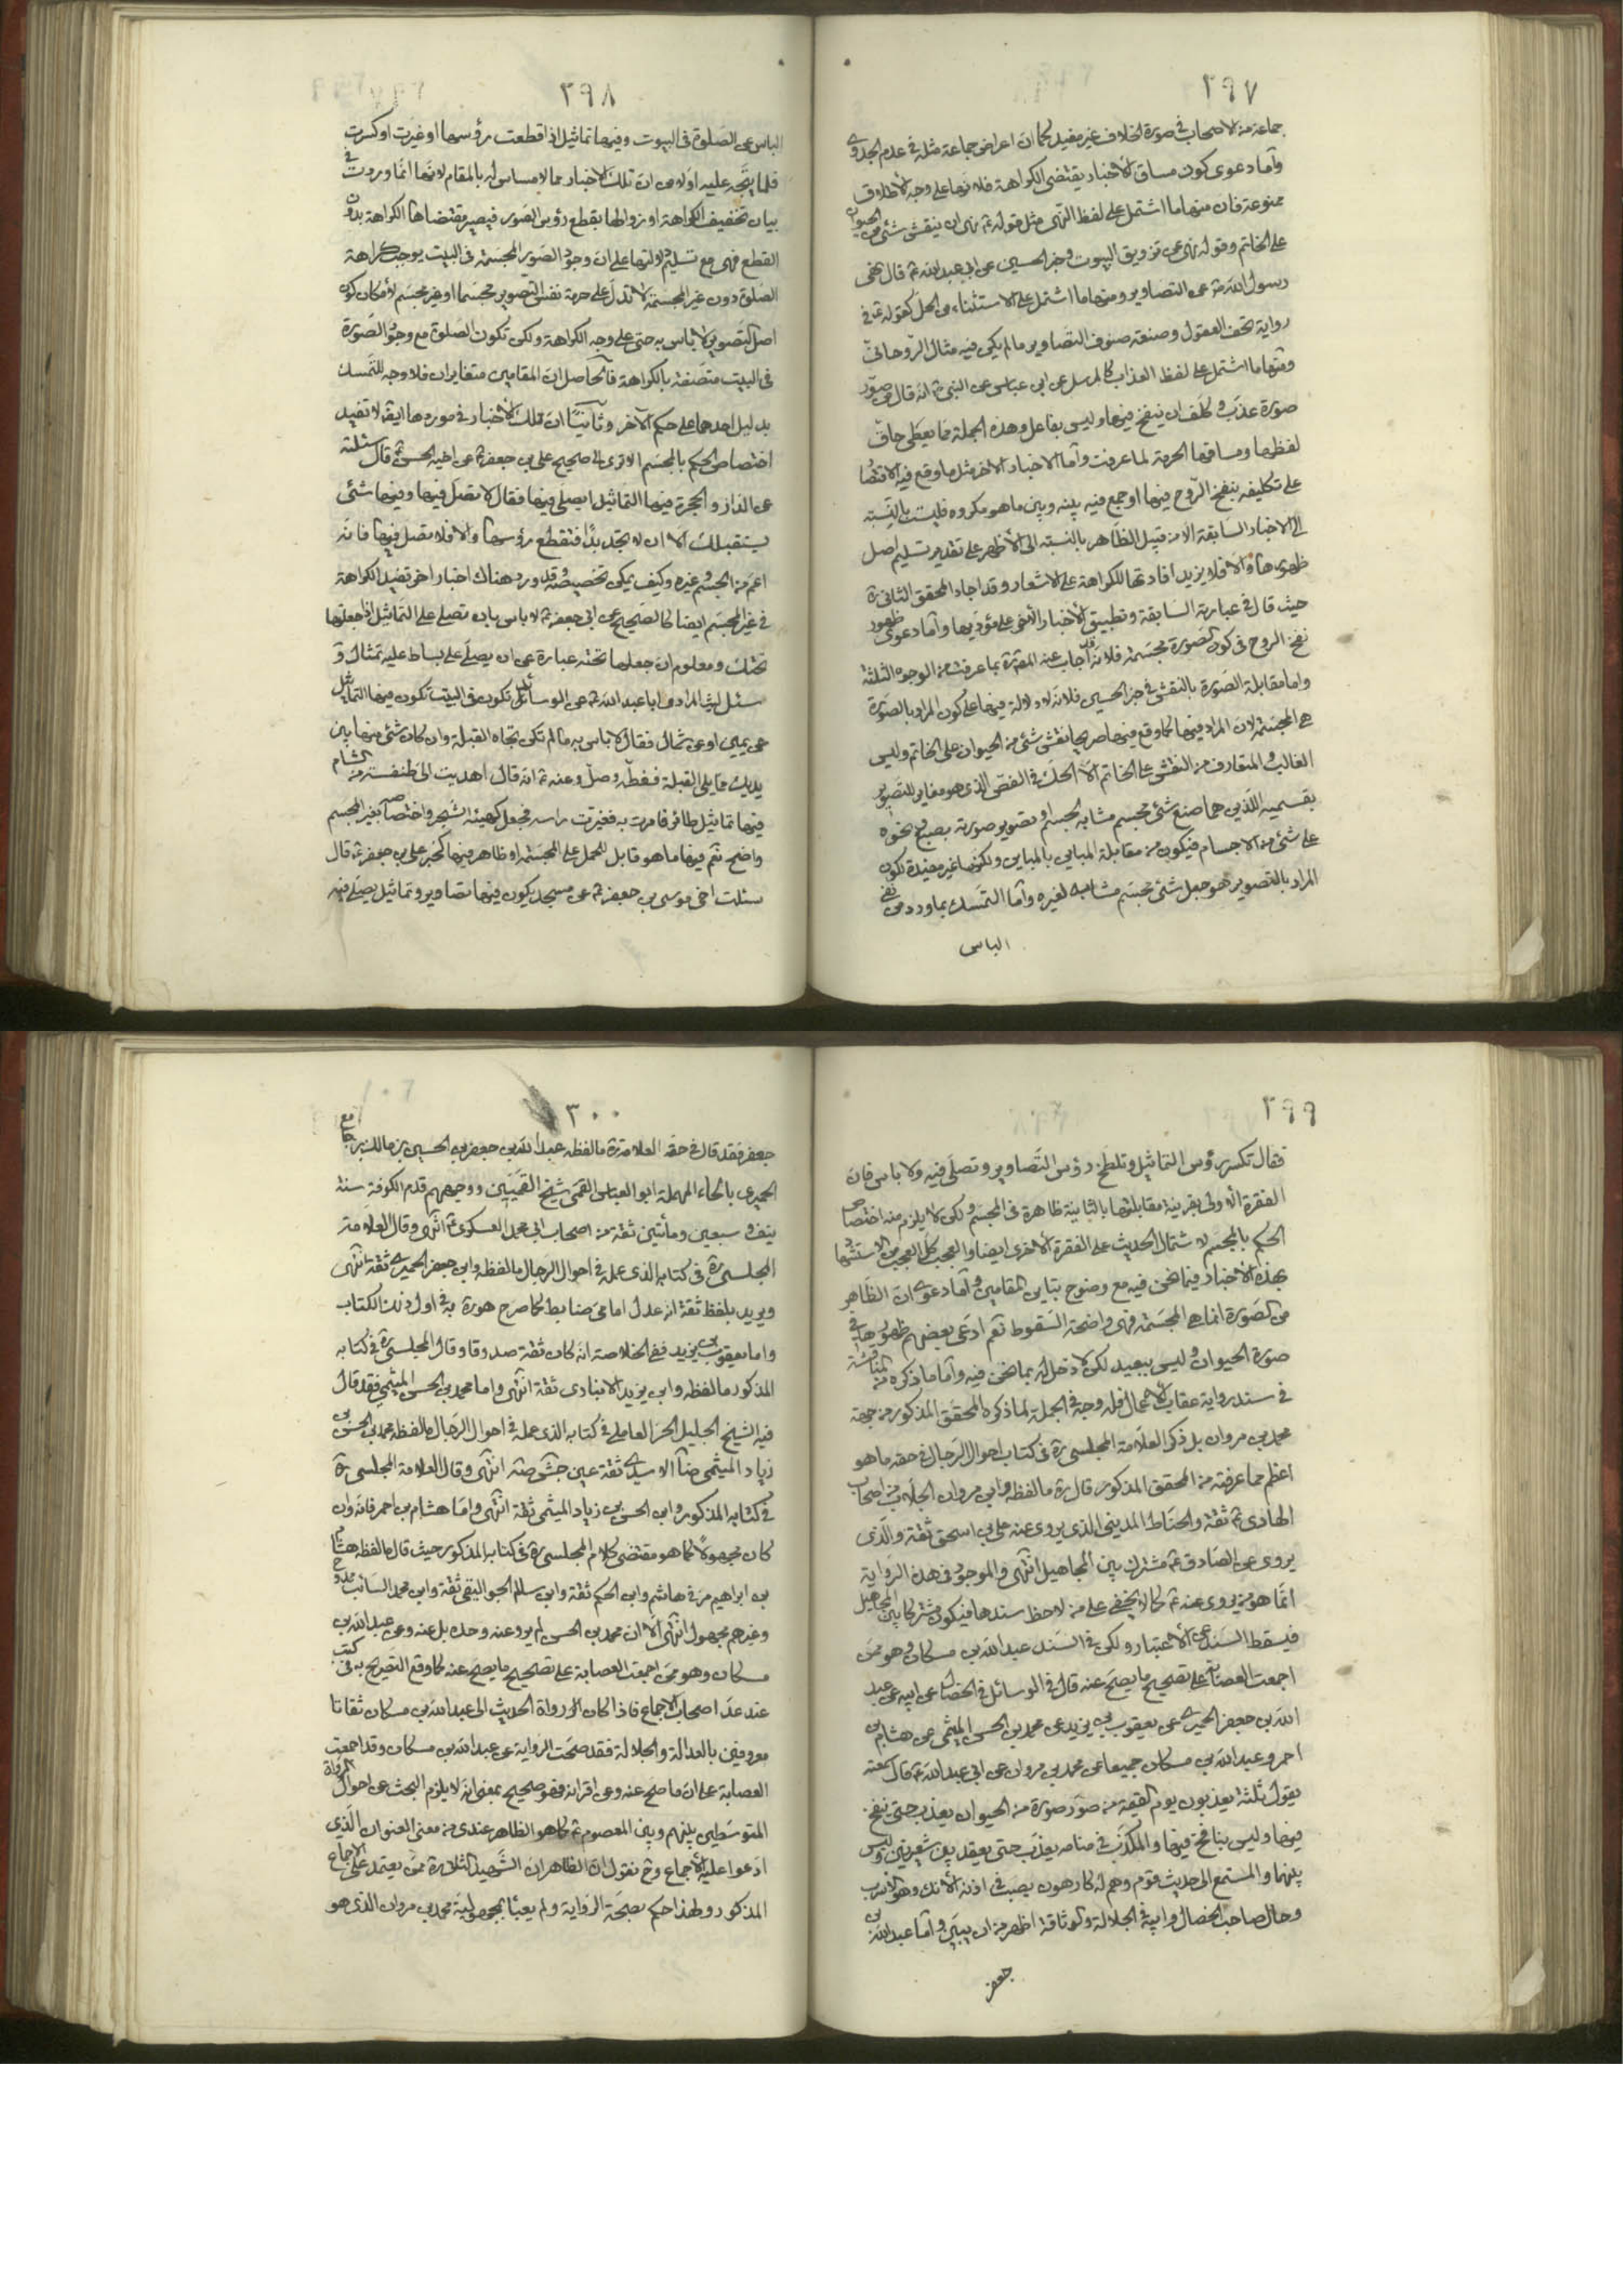 ٢٩٧
جماعة من الاصحاب في صورة الخلاف غير مفيد كما ان اعراض جماعة مثله في عدم الجدوى
وأما دعوى كون مساق الأخبار يقتضي الكراهة فلانها على وجه الاطلاق
ممنوعة فان منها ما اشتمل على لفظ النهى مثل قوله ع نهى ان ينقش شئ من الحيوان
على الخاتم وقوله نهى عن تزويق البيوت وخبر الحسين عن ابى عبد الله ع قال نهى
رسول الله ص عن التصاوير ومنها ما اشتمل على الاستثناء من الحل كقوله ع في
رواية تحف العقول وصنعة صنوف التصاوير ما لم يكن فيه مثال الروحاني
ومنها ما اشتمل على لفظ العذاب كالمرسل عن ابن عباس عن النبي ص انه قال من صور
صورة عذب وكلف ان ينفخ فيها وليس بفاعل وهذه الجملة مما يعطى حاق
لفظها ومساقها الحرمة لما عرفت وأما الاخبار الاخر مثل ما وقع فيه الاقتضا
على تكليفه بنفخ الروح فيها او جمع فيه بينه وبين ما هو مكروه فليست بالنسبة
الى الاخبار السابقة الا من قبيل الظاهر بالنسبة الى الأظهر على تقدير تسليم اصل
ظهورها والا فلا يزيد افادتها للكراهة على الاشعار وقد اجاد المحقق الثاني ره
حيث قال في عبارته السابقة وتطبيق الأخبار الأخر على مؤديها وأما دعوى ظهور
نفخ الروح في كون الصورة مجسمة فلانه قد اجاب عنه المقرر بما عرفت من الوجوه الثلثة
واما مقابلة الصورة بالنقش في خبر الحسين فلانه لا دلالة فيها على كون المراد بالصورة
هي المجسمة لان المراد فيها كما وقع فيها صريحا نقش شئ من الحيوان على الخاتم وليس
الغالب والمتعارف من النقش على الخاتم الا الحك في الفص الذي هو مغاير للتصوير
بقسميه اللذين هما صنع شئ مجسم مشابه لجسم وتصوير صورته بصبغ ونحوه
على شئ من الاجسام فيكون من مقابلة المباين بالمباين ولكنها غير مفيدة لكون
المراد بالتصوير هو جعل شئ مجسم مشابه لغيره وأما التمسك بما ورد من نفي
الباس
٢٩٨
الباس عن الصلوة في البيوت وفيها تماثيل اذا قطعت رؤسها او غيرت او كسرت
فلما يتجه عليه اولا من ان تلك الاخبار مما لا مساس له بالمقام لانها انما وردت في
بيان تخفيف الكراهة او زوالها بقطع رؤس الصور فيصير مقتضاها الكراهة بدون
القطع فهى مع تسليم دلالتها على ان وجود الصور المجسمة في البيت يوجب كراهة
الصلوة دون غير المجسمة لا تدل على حرمة نفس التصوير مجسما او غير مجسم لامكان كون
اصل التصوير لا باس به حتى على وجه الكراهة ولكن تكون الصلوة مع وجود الصورة
في البيت متصفة بالكراهة فالحاصل ان المقامين متغايران فلا وجه للتمسك
بدليل احدهما على حكم الآخر وثانيا ان تلك الأخبار في موردها ايضا لا تفيد
اختصاص الحكم بالمجسم الا ترى الى صحيح على بن جعفر ع عن اخيه الحسن ع قال سئلته
عن الدار والحجرة فيها التماثيل ايصلى فيها فقال لا تصل فيها وفيها شئ
يستقبلك الا ان لا تجد بدا فتقطع رؤسها والا فلا تصل فيها فانه
اعم من المجسم وغيره وكيف يمكن تخصيصه وقد ورد هناك اخبار اخر تفيد الكراهة
في غير المجسم ايضا كالصحيح عن ابى جعفر ع لا باس بان تصلى على التماثيل اذا جعلتها
تحتك ومعلوم ان جعلها تحته عبارة عن ان يصلى على بساط عليه تمثال و
سئل ليث المرادى ابا عبد الله ع عن الوسائد تكون في البيت تكون فيها التماثيل
عن يمين او عن شمال فقال لا باس به ما لم تكن تجاه القبلة وان كان شئ منها بين
يديك مما يلى القبلة فغطه وصل وعنه ع انه قال اهديت الى طنفسة من الشام
فيها تماثيل طائر فامرت به فغيرت راسه فجعل كهيئة الشجر واختصاصها بغير المجسم
واضح نعم فيها ما هو قابل للحمل على المجسمة او ظاهر فيها كخبر على بن جعفر ع قال
سئلت اخى موسى بن جعفر ع عن مسجد يكون فيها تصاوير وتماثيل يصلى فيه
٢٩٩
فقال تكسر رؤس التماثيل وتلطخ رؤس التصاوير وتصلى فيه ولا باس فان
الفقرة الأولى بقرينة مقابلتها بالثانية ظاهرة في المجسم ولكن لا يلزم منه اختصاص
الحكم بالمجسم لاشتمال الحديث على الفقرة الأخرى ايضا والعجب كل العجب من الاستشهاد
بهذه الأخبار فيما نحن فيه مع وضوح تباين المقامين وأما دعوى ان الظاهر
من الصورة انما هى المجسمة فهى واضحة السقوط نعم ادعى بعضهم ظهورها في
صورة الحيوان وليس ببعيد لكن لا دخل له بما نحن فيه وأما ما ذكره من المناقشة
في سند رواية عقاب الأعمال فله وجه في الجملة لما ذكره المحقق المذكور من جهة
محمد بن مروان بل ذكر العلامة المجلسي ره في كتاب احوال الرجال في حقه ما هو
اعظم مما عرفته من المحقق المذكور قال ره ما لفظه وابن مروان الجلاب من اصحاب
الهادى ع ثقة والحناط المدينى الذي يروى عنه على بن اسحق ثقة والذى
يروى عن الصادق ع مشترك بين المجاهيل انتهى والموجود في هذه الرواية
انما هو من يروى عنه ع كما لا يخفى على من لاحظ سندها فيكون مشتركا بين المجاهيل
فيسقط السند عن الاعتبار ولكن في السند عبد الله بن مسكان وهو ممن
اجمعت العصابة على تصحيح ما يصح عنه قال في الوسائل في الخصال عن ابيه عن عبد
الله بن جعفر الحميرى عن يعقوب بن يزيد عن محمد بن الحسن الميثمي عن هشام بن
احمر وعبد الله بن مسكان جميعا عن محمد بن مروان عن ابى عبد الله ع قال سمعته
يقول ثلثة يعذبون يوم القيمة من صور صورة من الحيوان يعذب حتى ينفخ
فيها وليس بنافخ فيها والمكذب في منامه يعذب حتى يعقد بين شعيرتين وليس بعاقد
بينهما والمستمع الى حديث قوم وهم له كارهون يصب في اذنه الأنك وهو الاسرب
وحال صاحب الخصال وابيه في الجلالة والوثاقة اظهر من ان يبين واما عبد الله بن
جعفر
٣٠٠
جعفر فقد قال في حقه العلامة ره ما لفظه عبد الله بن جعفر بن الحسين بن مالك بن جامع
الحميرى بالحاء المهملة ابو العباس القمى شيخ القميين ووجههم قدم الكوفة سنة
نيف وسبعين ومأتين ثقة من اصحاب ابى محمد العسكري ع انتهى وقال العلامة
المجلسي ره في كتابه الذى عمله في احوال الرجال ما لفظه وابن جعفر الحميرى ثقة انتهى
ويريد بلفظ ثقة انه عدل امامى ضابط كما صرح هو ره به في اول ذلك الكتاب
واما يعقوب بن يزيد ففي الخلاصة انه كان ثقة صدوقا وقال المجلسي ره في كتابه
المذكور ما لفظه وابن يزيد الانبارى ثقة انتهى واما محمد بن الحسن الميثمي فقد قال
فيه الشيخ الجليل الحر العاملى في كتابه الذى عمله في احوال الرجال ما لفظه محمد بن الحسن بن
زياد الميثمى ضا الاسدى ثقة عين جش صه انتهى وقال العلامة المجلسي ره
في كتابه المذكور وابن الحسن بن زياد الميثمى ثقة انتهى واما هشام بن احمر فانه وان
كان مجهولا كما هو مقتضى كلام المجلسي ره في كتابه المذكور حيث قال ما لفظه هشام
بن ابراهيم مر في هاشم وابن الحكم ثقة وابن سالم الجواليقي ثقة وابن محمد السائب ممدوح
وغيرهم مجهول انتهى الا ان محمد بن الحسن لم يرو عنه وحده بل عنه وعن عبد الله بن
مسكان وهو ممن اجمعت العصابة على تصحيح ما يصح عنه كما وقع التصريح به في كتب
عند عد اصحاب الاجماع فاذا كان رواة الحديث الى عبد الله بن مسكان ثقاتا
معروفين بالعدالة والجلالة فقد صحت الرواية عن عبد الله بن مسكان وقد اجمعت
العصابة على ان ما صح عنه وعن اقرانه فهو صحيح بمعنى انه لا يلزم البحث عن احوال الرواة
المتوسطين بينهم وبين المعصوم ع كما هو الظاهر عندى من معنى العنوان الذي
ادعوا عليه الأجماع وح نقول ان الظاهر ان الشهيد الثاني ره ممن يعتمد على الاجماع
المذكور ولهذا حكم بصحة الرواية ولم يعبأ بمجهولية محمد بن مروان الذى هو